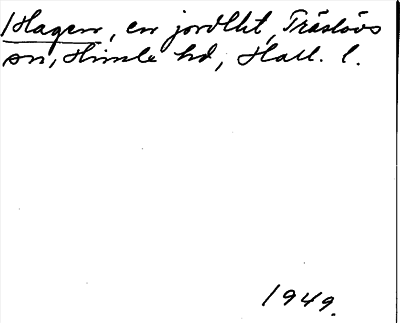 Hagen, en jordlht, Träslövs
sn, Himle hd, Hall. l.
1949.